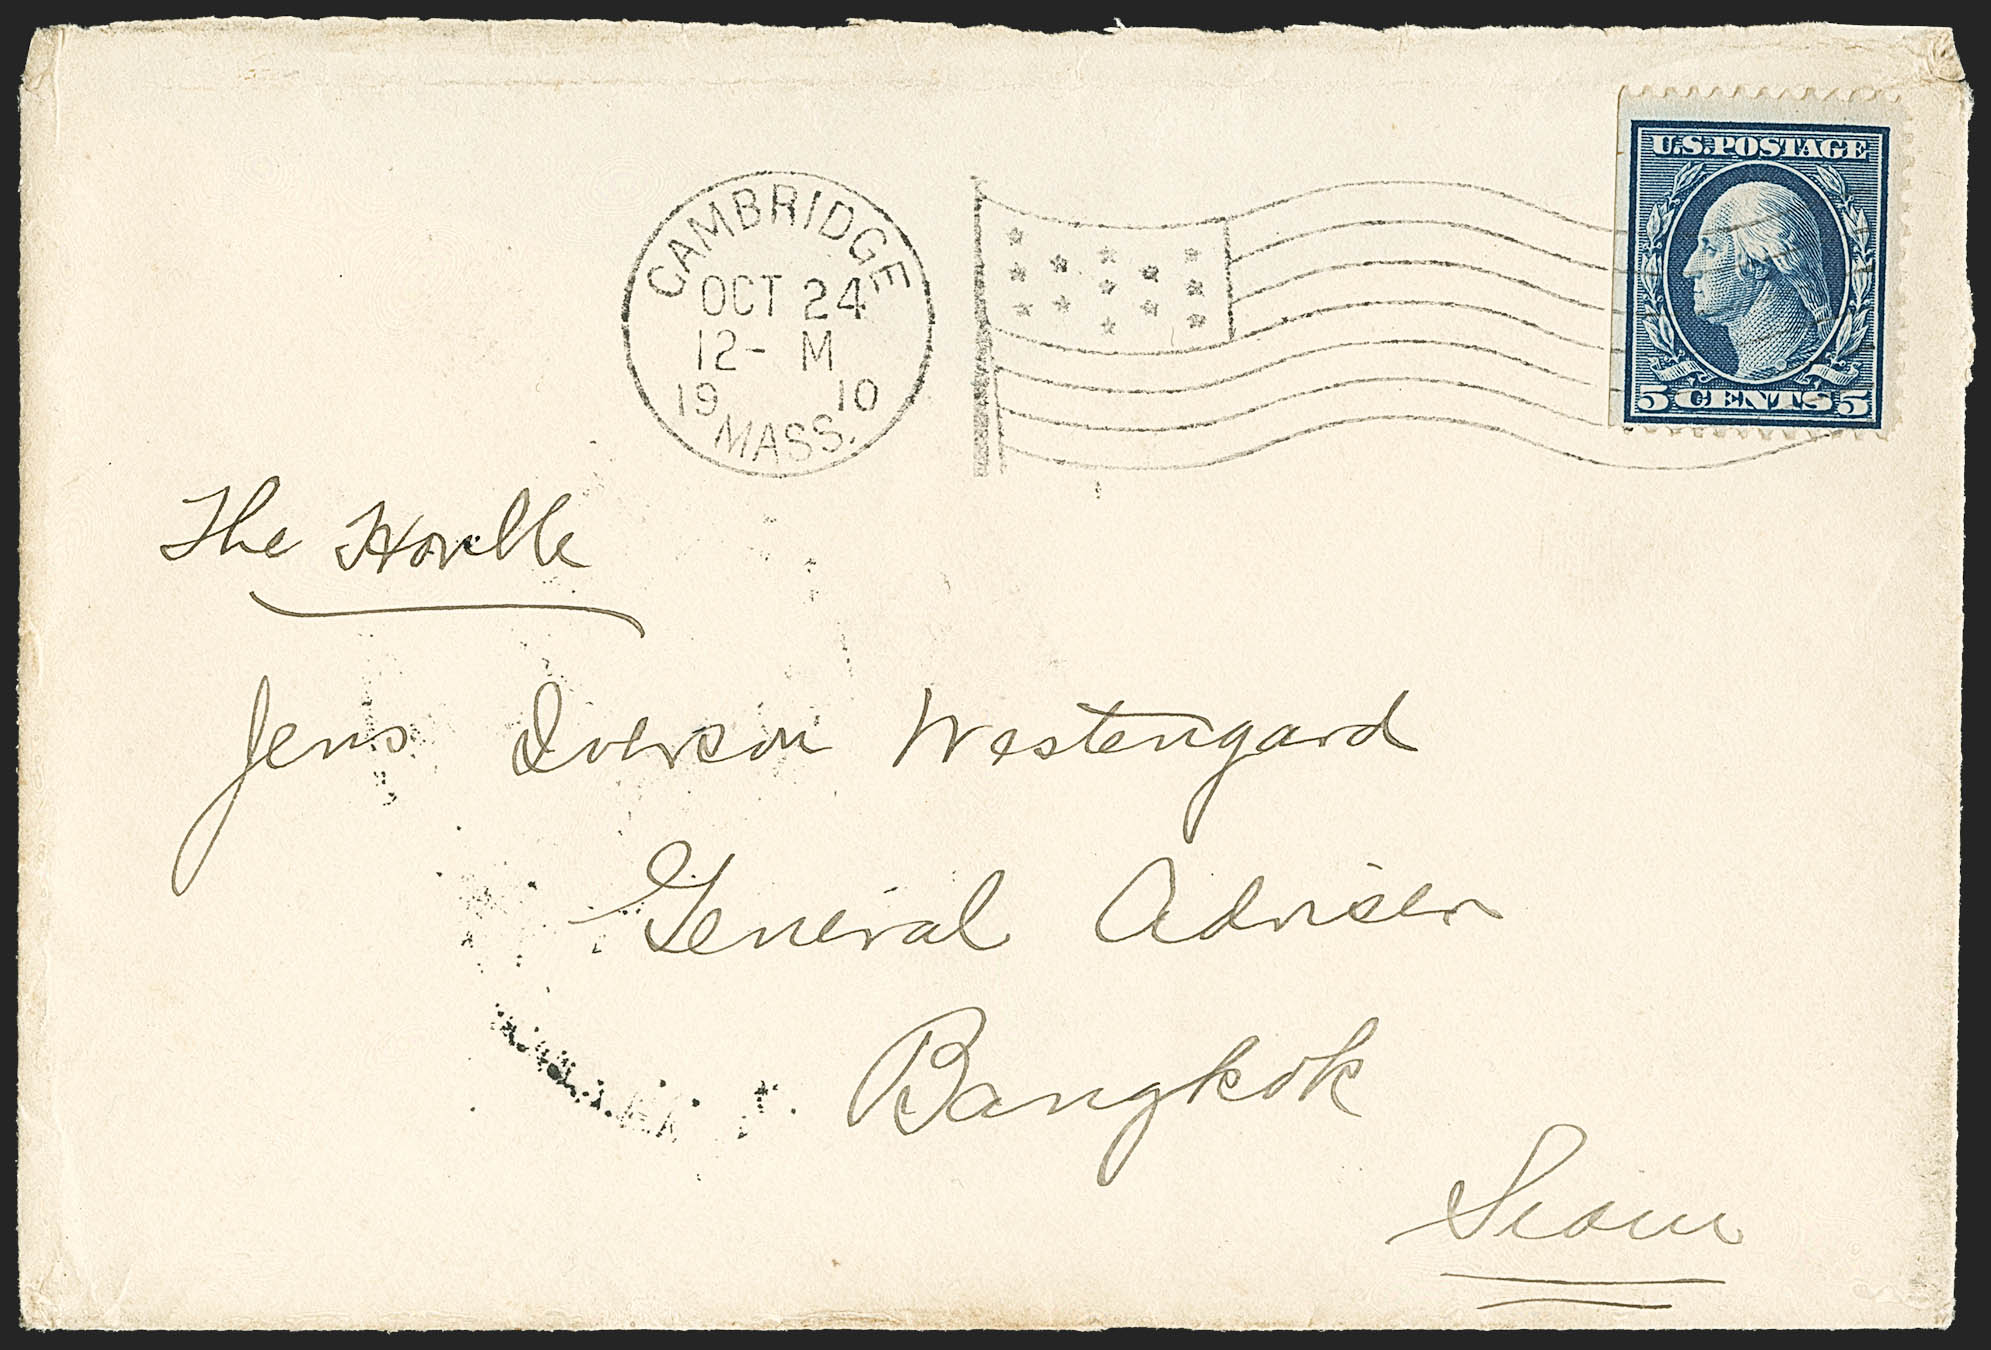 CAMBRIDGE
OCT 24
12- M
19 10
MASS.
U.S. POSTAGE
5 CENTS 5
The Honble
Jens Iverson Westengard
General Adviser
Bangkok
Siam